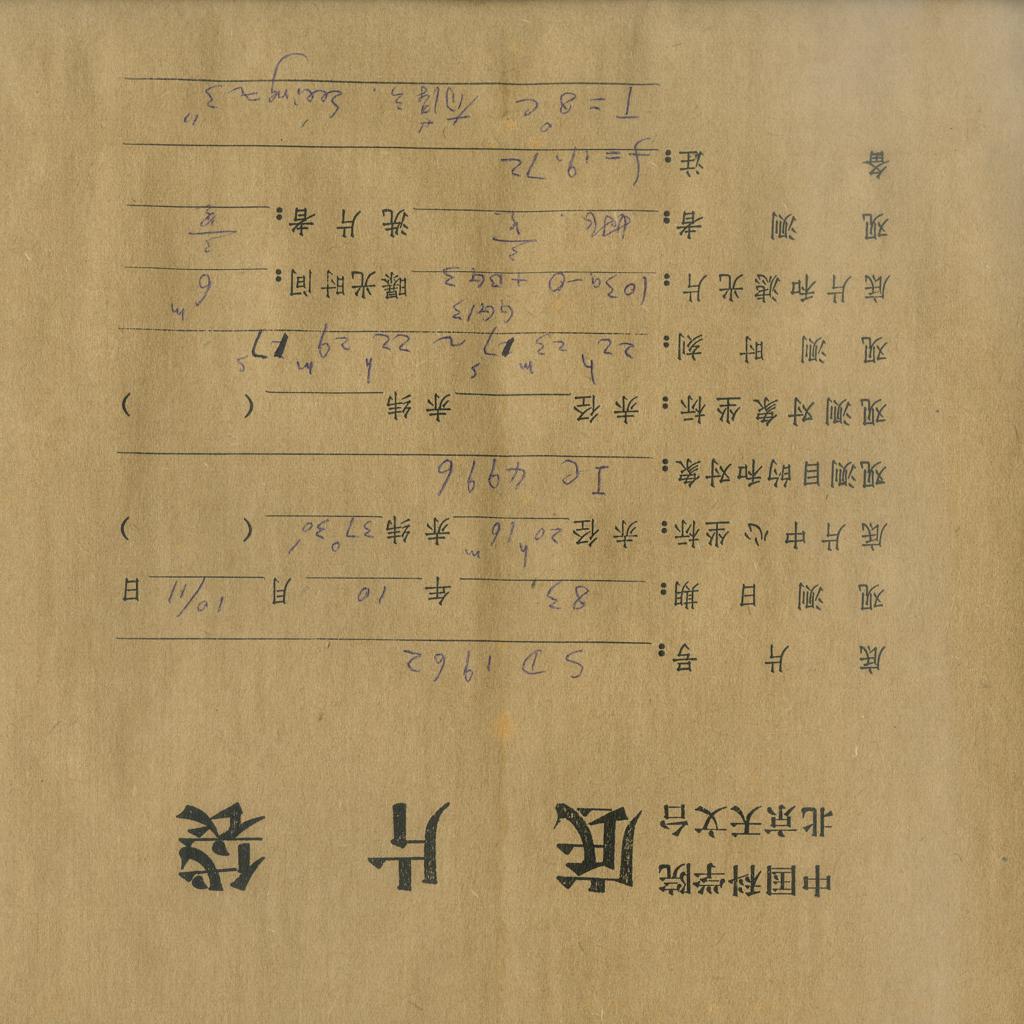 中国科学院
北京天文台 底 片 袋
底 片 号: SD 1962
观 测 日 期: 83, 年 10 月 10/11 日
底片中心坐标: 赤 径 20h16m 赤 纬 37°30′ ( )
观测目的和对象: IC 4996
观测对象坐标: 赤 径 赤 纬 ( )
观 测 时 刻: 22h 23m 17s ~ 22h 29m 17s
GG13
底片和滤光片: 103a-O + 曝光时间: 6m
观 测 者: 洗 片 者:
备 注: f=19.72
T=8°C Seeing~3"